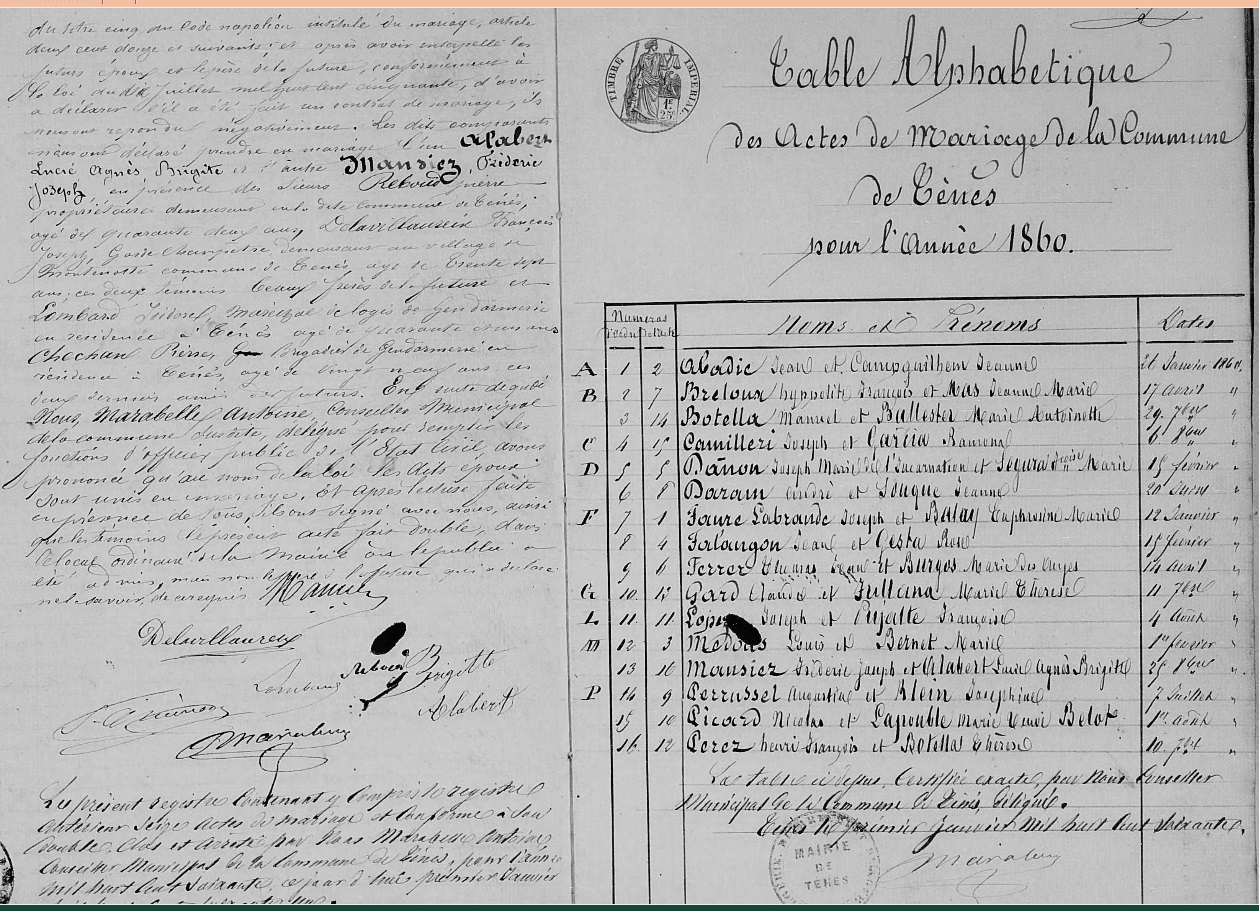 du titre cinq du Code napoléon intitulé du mariage, article
deux cent douze et suivants: et après avoir interpellé les
futurs époux et le père de la future, conformément à
la loi du dix Juillet mil huit cent cinquante, d'avoir
a déclarer s'il a été fait un contrat de mariage, ils
nous ont répondu négativement. Les dits comparants
nous ont déclaré prendre en mariage l'un Alabert
Lucie Agnès, Brigite et l'autre Mansiez, Fréderic
Joseph, en présence des Sieurs Reboud pierre
propriétaire demeurant en la dite commune de Ténés,
agé de quarante deux ans, Delavillauseix François
Joseph, Garde Champêtre, demeurant au village de
Montenotte commune de Ténés, agé de trente sept
ans, ces deux témoins beaux frères de la future et
Lombard Isidore, Maréchal de logis de Gendarmerie
en résidence à Ténés agé de quarante et un ans
Chechan Pierre, Brigadier de Gendarmerie en
résidence à Ténés, agé de vingt neuf ans ces
deux derniers amis des futurs. En suite de quoi
Nous, Marabelle Antoine, Conseiller Municipal
de la commune susdite, délégué pour remplir les
fonctions d'officier public de l'Etat Civil, avons
prononcé qu'au nom de la loi les dits époux
sont unis en mariage. Et après lecture faite
en présence de tous, ils ont signé avec nous, ainsi
que les témoins le présent acte fait double, dans
le local ordinaire de la Mairie où le public a
été admis, mais non le père de la future qui a déclaré
ne le savoir, de ce requis Mansiez
Delavillauseix
Lombard Reboud Brigitte
Alabert
Marabelle
Le présent registre Contenant y Compris le registre
antérieur Seize Actes de mariage et Conforme à Son
double, Clos et Arrêté par Nous Marabelle Antoine
Conseiller Municipal de la Commune de Ténés, pour l'année
Mil huit Cent Soixante, ce jour d'hui premier Janvier
TIMBRE IMPERIAL
1F
25C
Table Alphabetique
des Actes de Mariage de la Commune
de Ténès
pour l'Année 1860.
Numeros
d'ordre de l'acte Noms et Prénoms Dates
A 1 2 Abadie Jean et Campguilhem Jeanne 26 Janvier 1860.
B 2 7 Breloux hyppolite François et Mas Jeanne Marie 17 Avril "
3 14 Botella Manuel et Ballester Marie Antoinette 29 7bre "
C 4 15 Camilleri Joseph et Garcia Ramona 6 8bre "
D 5 5 Dañon Joseph Marie de l'Incarnation et Segura Marie 15 février "
6 8 Daram André et Souque Jeanne 20 "
F 7 1 Faure Labrande Joseph et Balay Euphrosine Marie 12 Janvier "
8 4 Falangon Jean et Cesta Rose 15 février "
9 6 Ferrer Thomas Jean et Burgos Marie des Anges 14 Avril "
G 10 13 Gard Claude et Julliana Marie Thérèse 11 7bre "
L 11 11 Lopez Joseph et Pujalte Françoise 4 Août "
M 12 3 Medous Louis et Bernet Marie 1er février "
13 16 Mansiez Fréderic Joseph et Alabert Lucie Agnès Brigitte 25 8bre "
P 14 9 Perrussel Augustine et Klein Josephine 7 Juillet "
15 10 Picard Nicolas et Lapouble Marie Belot 1er Août "
16 12 Perez henri François et Botella Thérèse 10 7bre "
La table ci dessus, Certifiée exacte, par Nous Conseiller
Municipal de la Commune de Ténés, Délégué.
Ténés le premier Janvier Mil huit Cent Soixante.
Marabelle
MAIRIE
DE
TÉNÈS